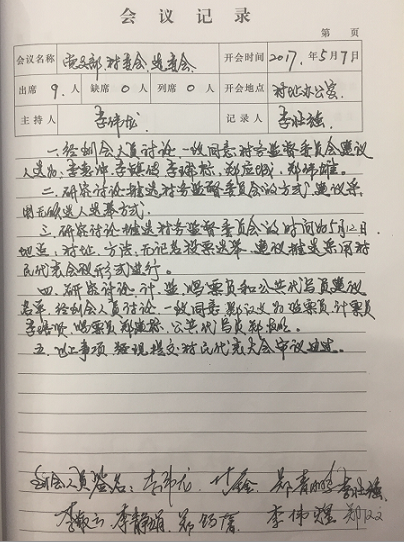 会议记录
第 页
会议名称 党支部、村委会、选委会 开会时间 2017年5月7日
出席 9人 缺席 0人 列席 0人 开会地点 村址办公室
主持人 李伟龙 记录人 李壮强
一.经到会人员讨论,一致同意村务监督委员会建议
人选为:李 李 李 郑应 郑 雄。
二.研究讨论推选村务监督委员会的方式,建议采
用无候选人选举方式.
三.研究讨论推选村务监督委员会的时间为5月12日
地点:村址.方法:无记名投票选举.建议推选采用村
民代表会议形式进行。
四.研究讨论,计、监、唱票员和公共代写员建议
名单,经到会人员讨论,一致同意郑汉文为监票员,计票员
李 贤 唱票员郑 标,公共代写员郑
五.以上事项,经现提交村民代表大会审议通过。
到会人员签名:李伟龙 郑 李壮强
李 李静娟 郑 李伟 郑汉文